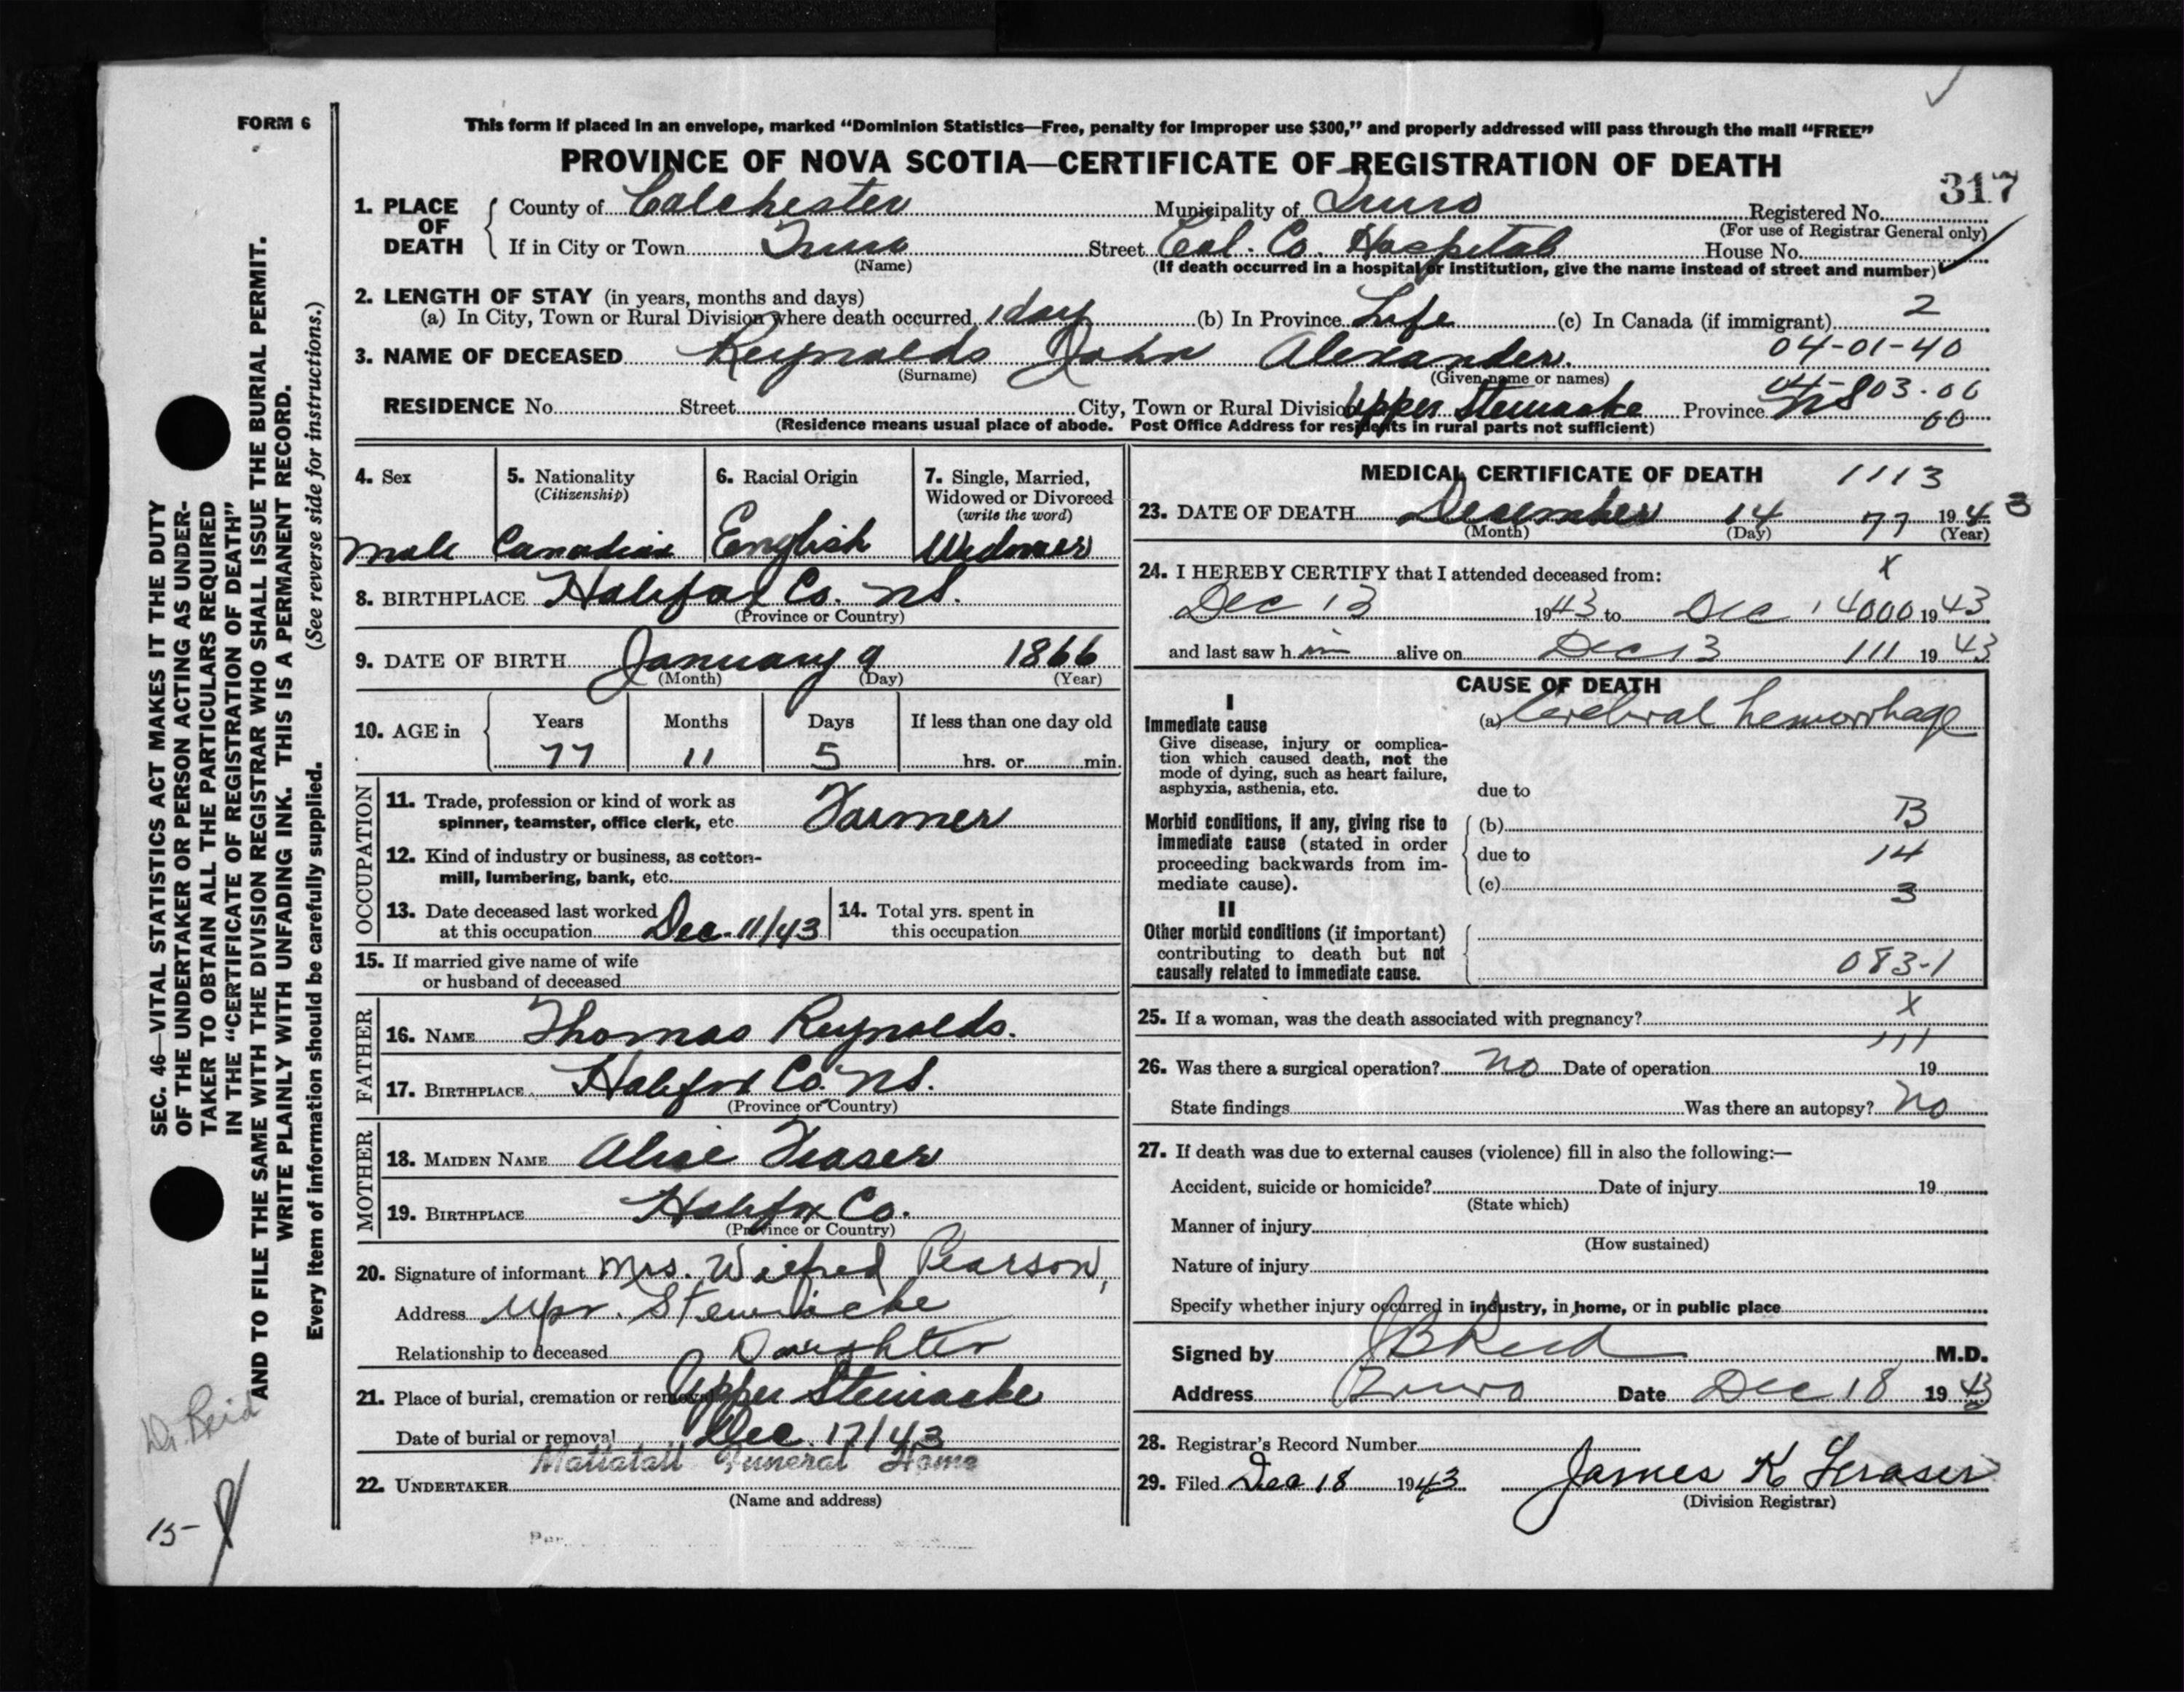 FORM 6
This form if placed in an envelope, marked “Dominion Statistics—Free, penalty for improper use $300,” and properly addressed will pass through the mail “FREE”
PROVINCE OF NOVA SCOTIA—CERTIFICATE OF REGISTRATION OF DEATH
317
1. PLACE OF DEATH
County of Colchester Municipality of Truro Registered No.
(For use of Registrar General only)
If in City or Town Truro Street Col. Co. Hospital House No.
(Name) (If death occurred in a hospital or institution, give the name instead of street and number)
2. LENGTH OF STAY (in years, months and days)
(a) In City, Town or Rural Division where death occurred 1 day (b) In Province Life (c) In Canada (if immigrant) 2
3. NAME OF DECEASED Reynolds John Alexander. 04-01-40
(Surname) (Given name or names)
RESIDENCE No. Street City, Town or Rural Division Upper Stewiacke Province NS 04-803-06
00
(Residence means usual place of abode. Post Office Address for residents in rural parts not sufficient)
4. Sex
Male
5. Nationality
(Citizenship)
Canadian
6. Racial Origin
English
7. Single, Married, Widowed or Divorced
(write the word)
Widower
8. BIRTHPLACE Halifax Co. N.S.
(Province or Country)
9. DATE OF BIRTH January 9 1866
(Month) (Day) (Year)
10. AGE in Years Months Days If less than one day old
77 11 5 hrs. or min.
OCCUPATION
11. Trade, profession or kind of work as
spinner, teamster, office clerk, etc. Farmer
12. Kind of industry or business, as cotton-
mill, lumbering, bank, etc.
13. Date deceased last worked
at this occupation Dec. 11/43
14. Total yrs. spent in
this occupation
15. If married give name of wife
or husband of deceased
FATHER
16. NAME Thomas Reynolds.
17. BIRTHPLACE Halifax Co. N.S.
(Province or Country)
MOTHER
18. MAIDEN NAME Alice Fraser
19. BIRTHPLACE Halifax Co.
(Province or Country)
20. Signature of informant Mrs. Wilfred Pearson,
Address Upr. Stewiacke
Relationship to deceased Daughter
21. Place of burial, cremation or removal Upper Stewiacke
Date of burial or removal Dec. 17/43
Mattatall Funeral Home
22. UNDERTAKER
(Name and address)
Per
MEDICAL CERTIFICATE OF DEATH 1113
23. DATE OF DEATH December 14 77 1943
(Month) (Day) (Year)
24. I HEREBY CERTIFY that I attended deceased from: X
Dec 13 1943 to Dec 14 000 1943
and last saw h im alive on Dec 13 111 1943
CAUSE OF DEATH
I
Immediate cause (a) Cerebral hemorrhage
Give disease, injury or complica-
tion which caused death, not the
mode of dying, such as heart failure,
asphyxia, asthenia, etc.
due to
Morbid conditions, if any, giving rise to
immediate cause (stated in order
proceeding backwards from im-
mediate cause).
(b) B
due to 14
(c) 3
II
Other morbid conditions (if important)
contributing to death but not
causally related to immediate cause. 083-1
X
25. If a woman, was the death associated with pregnancy?
111
26. Was there a surgical operation? No Date of operation 19
State findings Was there an autopsy? No
27. If death was due to external causes (violence) fill in also the following:—
Accident, suicide or homicide? Date of injury 19
(State which)
Manner of injury
(How sustained)
Nature of injury
Specify whether injury occurred in industry, in home, or in public place
Signed by J B Reid M.D.
Address Truro Date Dec 18 1943
28. Registrar's Record Number
29. Filed Dec 18 1943 James K Fraser
(Division Registrar)
SEC. 46—VITAL STATISTICS ACT MAKES IT THE DUTY
OF THE UNDERTAKER OR PERSON ACTING AS UNDER-
TAKER TO OBTAIN ALL THE PARTICULARS REQUIRED
IN THE “CERTIFICATE OF REGISTRATION OF DEATH”
AND TO FILE THE SAME WITH THE DIVISION REGISTRAR WHO SHALL ISSUE THE BURIAL PERMIT.
WRITE PLAINLY WITH UNFADING INK. THIS IS A PERMANENT RECORD.
Every item of information should be carefully supplied. (See reverse side for instructions.)
Dr. Reid
15-